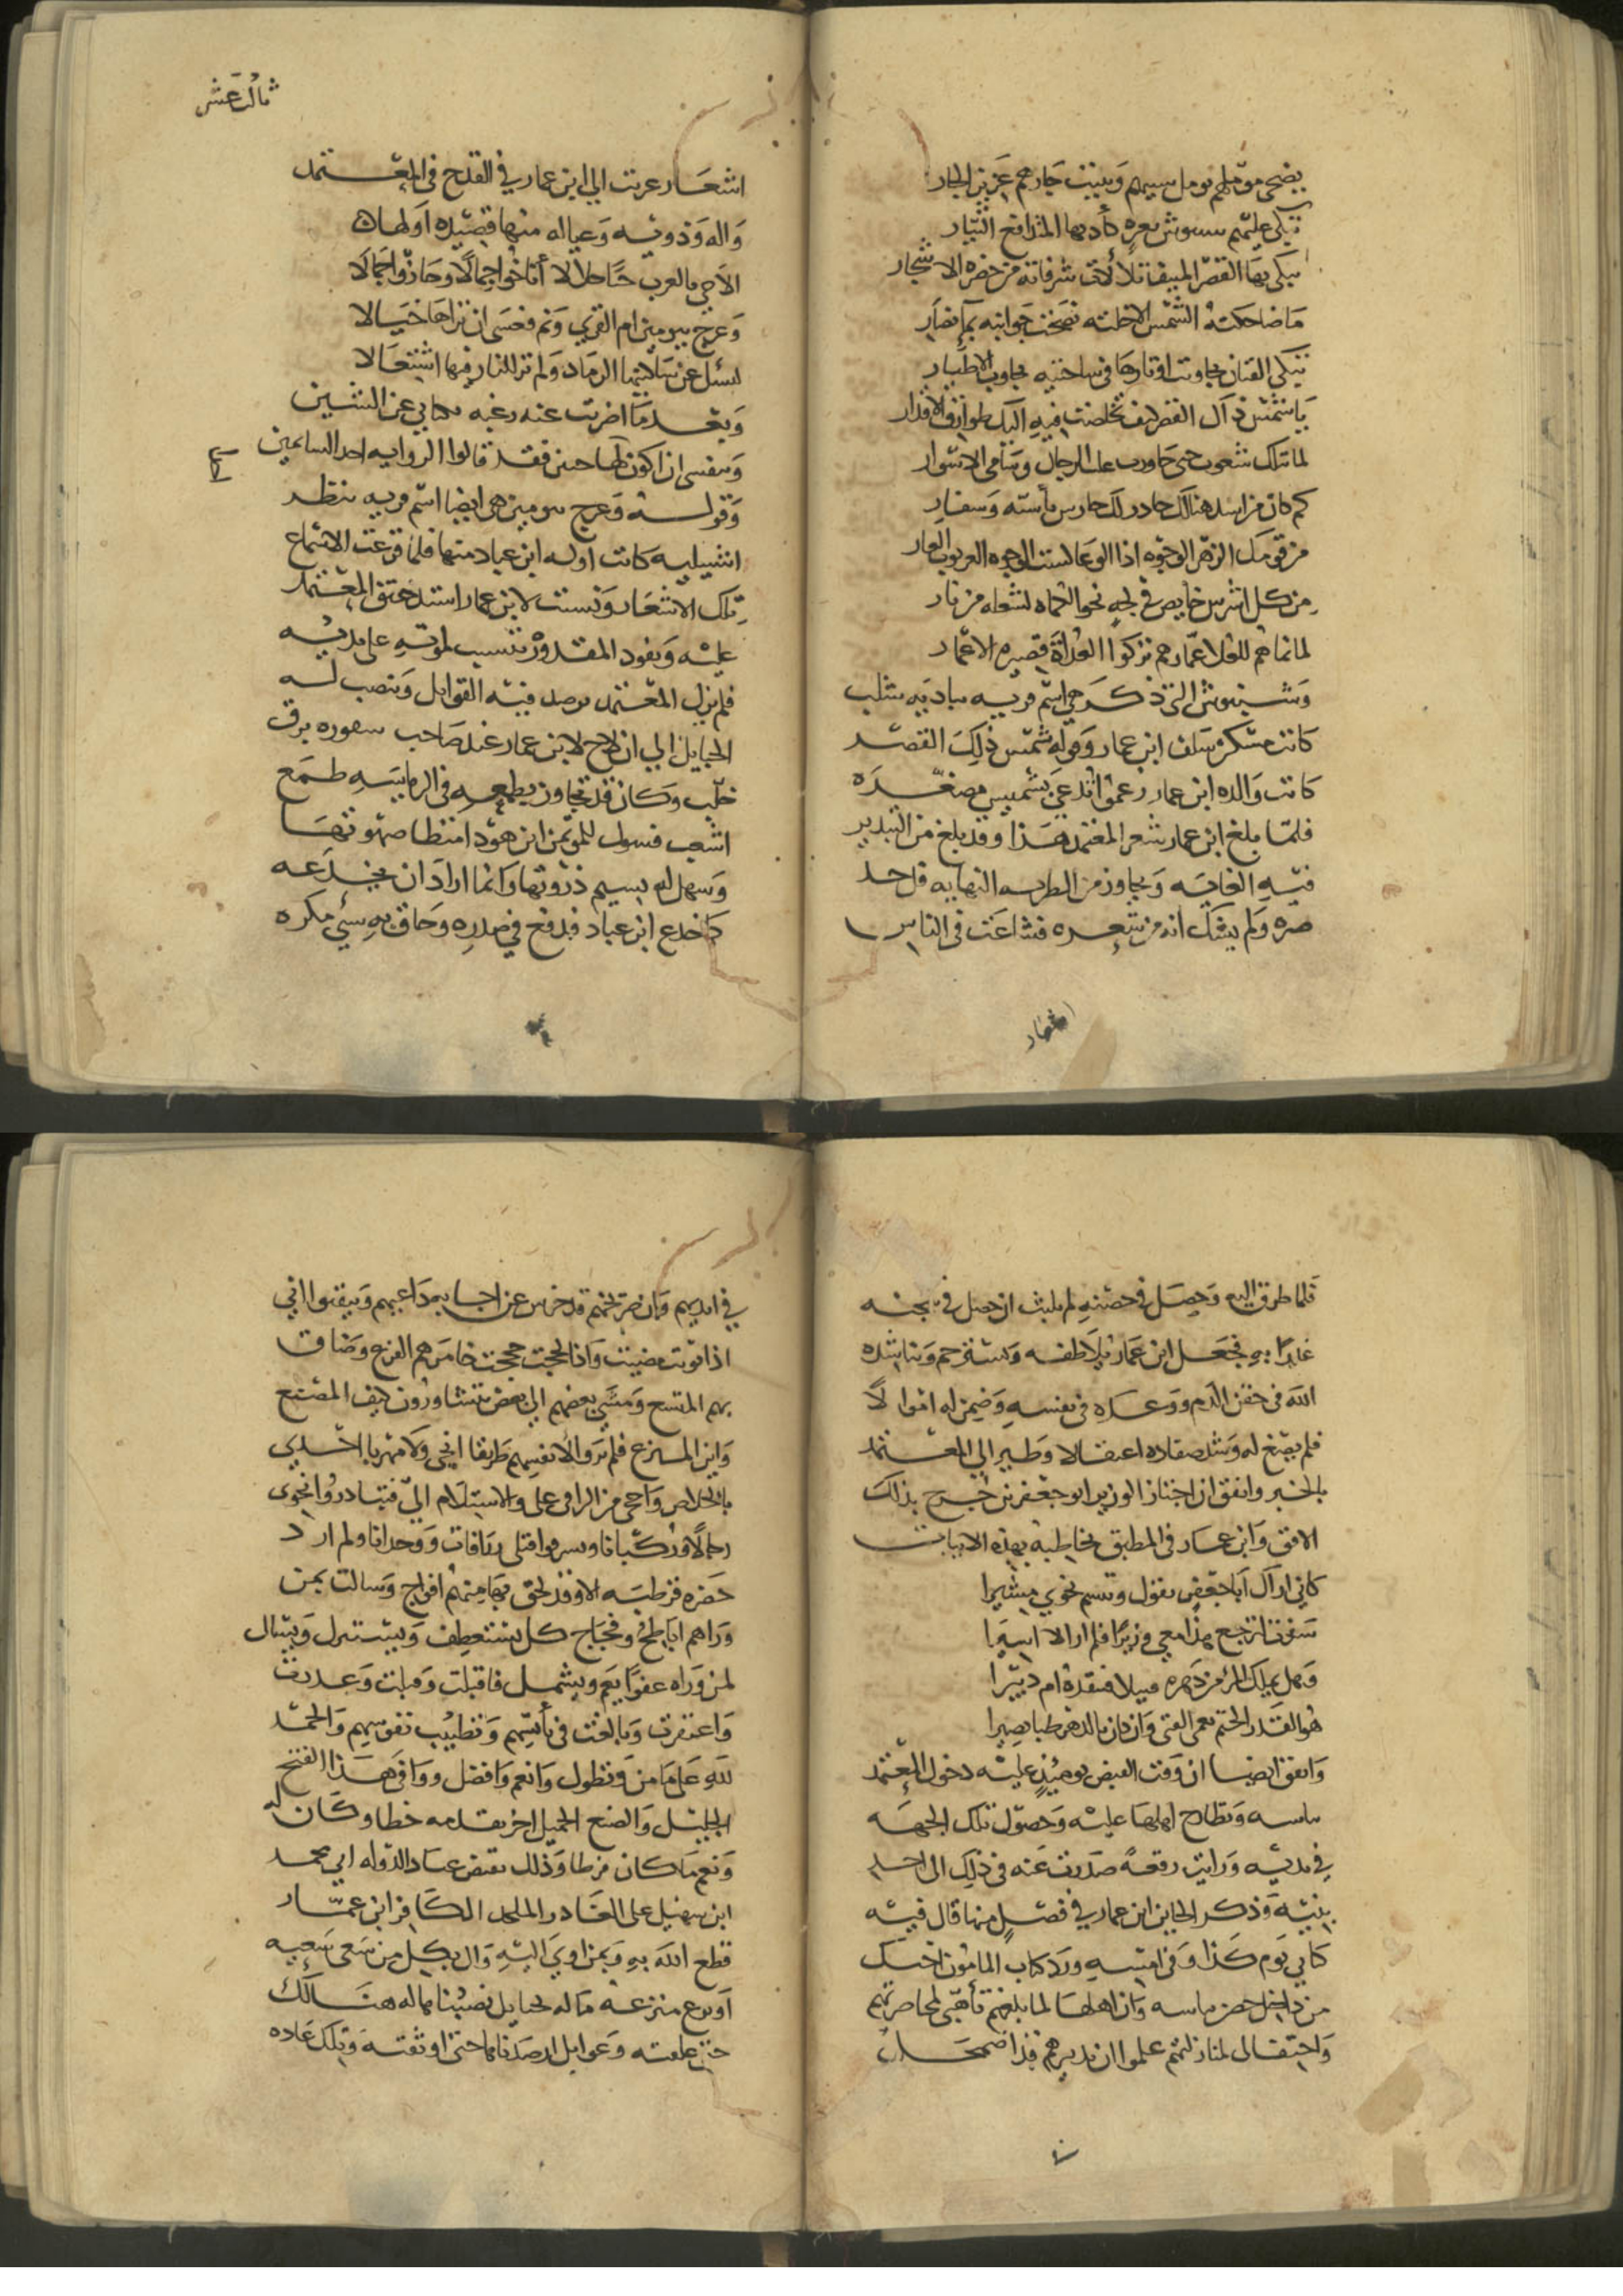 يضحى مؤملهم يومل سيبهم ويبيت جارهم عزيز الجار
تبكي عليهم شنبوس بعبرة كأديها المتدافع التيار
يبكي بها القصر المنيف تلألأت شرفاته من خضرة الاشجار
ما ضاحكته الشمس الا خلته نضحت جوانبه بماء نضار
تبكي القيان تجاوبت اوتارها في ساحتيه تجاوب الاطيار
يا شمس ذاك القصر كيف تخلصت فيه اليك طوارق الاقدار
لما تنلك شعوب حتى جاوزت غلب الرجال وسامي الاسوار
كم كان من اسد هنالك خادر لك حارس بأسنة وشفار
من قومك الزهر الوجوه اذا الوغا كست الوجوه الغر ثوب القار
من كل اشوس خايض في لجة نحو الكماة لشعلة من نار
لما نماهم للعلا عمارهم تركوا العداة قصيرة الاعمار
وشنبوس التي ذكر هي اسم قرية ببادية شلب
كانت مسكن سلف ابن عمار وقوله شمس ذلك القصر
كانت والدة ابن عمار زعموا تدعى شميس مصغرة
فلما بلغ ابن عمار شعر المعتمد هذا وقد بلغ من التبدير
فيه الغاية وتجاوز من الطرب النهاية قل حد
صبره ولم يشك انه من شعره فشاعت في الناس
اشعار
ثالث عشر
اشعار عزيت الي ابن عمار في القدح في المعتمد
واله وذويه وعياله منها قصيدة اولها
الا حي بالعرب حيا حلالا أناخوا جمالا وحازوا جمالا
وعرج بيومين ام القرى ونم فعسى ان تراها خيالا
لتسئل عن ساكنيها الرماد ولم تر للنار فيها اشتعالا
وبعد ما اضربت عنه رغبة بكتابي عن الشين
وبنفسي ان اكون احد الهاجين فقد قالوا الرواية احد الشاتمين
وقوله وعرج بيومين هي ايضا اسم قرية بنظر
اشبيلية كانت اولية ابن عباد منها فلما قرعت الاسماع
تلك الاشعار ونسبت لابن عمار اشتد حنق المعتمد
عليه ويفود المقدور تتسبب لموته على يديه
فلم يزل المعتمد يرصد فيه الغوايل وينصب له
الحبايل الي ان لاح لابن عمار عند صاحب شقورة برق
خلب وكان قد تجاوز بطمعه في الرياسة طمع
اشعب فسول للمؤتمن ابن هود امتطا صهوتها
وسهل له تسنم ذروتها وانما اراد ان يخدعه
كما خدع ابن عباد فدفع في صدره وحاق به سيئ مكره
فلما طرق اليه وحصل في حصنه لم يلبث ان حصل في سجنه
غدرا به فجعل ابن عمار يلاطفه ويسترحم ويناشده
الله في حقن الدم ووعده في نفسه وضمن له اموالا
فلم يصغ له وشد صفاده اعتقالا وطير الي المعتمد
بالخبر واتفق ان اجتاز الوزير ابو جعفر بن جرج بذلك
الافق وابن عمار في المطبق يخاطبه بهذه الابيات
كاني اراك أبا جعفر تقول وتبسم نحوي مشيرا
سفرنا لنرجع هذا معي وزيرا فلم ار الا اسيرا
وهل يملك المرء من دهره قبيلا فتفقده ام دبيرا
هو القدر الحتم يعمي الفتى وان كان بالدهر طبا بصيرا
واتفق ايضا ان وقت القبض يومئذ عليه دخول المعتمد
بياسة وتطارح اهلها عليه وحصول تلك الجهة
في يديه ورايت رقعة صدرت عنه في ذلك الى احد
بنيه وذكر الحاين ابن عمار في فصل منها قال فيه
كتابي يوم كذا وفي امسه ورد كتاب المأمون اخيك
من داخل حصن بياسة وان اهلها لما بلغهم تأهبي لمحاصرتهم
واحتفالي لمنازلتهم علموا ان تدبيرهم قد اضمحل
في ايديهم وان ضريخهم قد خرس عن اجابة داعيهم وتيقنوا اني
اذا نويت مضيت واذا لججت حججت خامرهم الفزع وضاق
بهم المتسع ومشى بعضهم الي بعض يتشاورون كيف المصنع
واين المنزع فلم يروا لانفسهم طريقا انجى ولا مهربا احدى
بالخلاص واحجى من الترامي علي والاستسلام اليّ فتبادروا نحوى
رجالا وركبانا وتسرعوا قبلي زرافات ووحدانا ولم ارد
حضرة قرطبة الا وقد لحق بها منهم افواج وسالت بمن
وراهم اباطح وفجاج كل يستعطف ويستنزل ويسال
لمن وراه عفوا يعم ويشمل فاقبلت وقبلت وعددت
واغتفرت وبالغت في تأنيسهم وتطييب نفوسهم والحمد
لله على ما من وتطول وانعم وافضل ووافى هذا الفتح
الجليل والصنع الجميل اخر تقدمه خطا وكان له
ونعم ما كان فرطا وذلك بقبض عماد الدولة ابي محمد
ابن سهيل على الغادر الملحد الكافر ابن عمار
قطع الله به وبمن اوي اليه وال بكل من سعى سعيه
او نزع منزعه ماله حبايل نصبنا له هنالك
حتى علقته وغوايل ارصدناها حتى اوثقته وتلك عادة